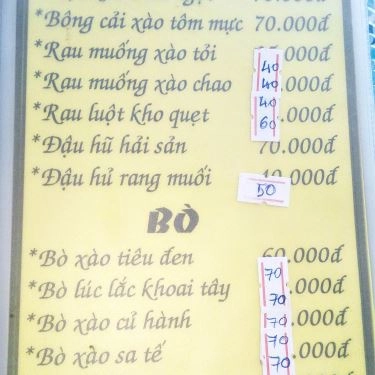 *Bông cải xào tôm mực 70.000đ
*Rau muống xào tỏi 40 .000đ
*Rau muống xào chao 40 .000đ
*Rau luột kho quẹt 40 60 .000đ
*Đậu hũ hải sản 70.000đ
*Đậu hủ rang muối 50 .000đ
BÒ
*Bò xào tiêu đen 60.000đ
*Bò lúc lắc khoai tây 70 .000đ
*Bò xào củ hành 70 70 .000đ
*Bò xào sa tế 70 70 .000đ